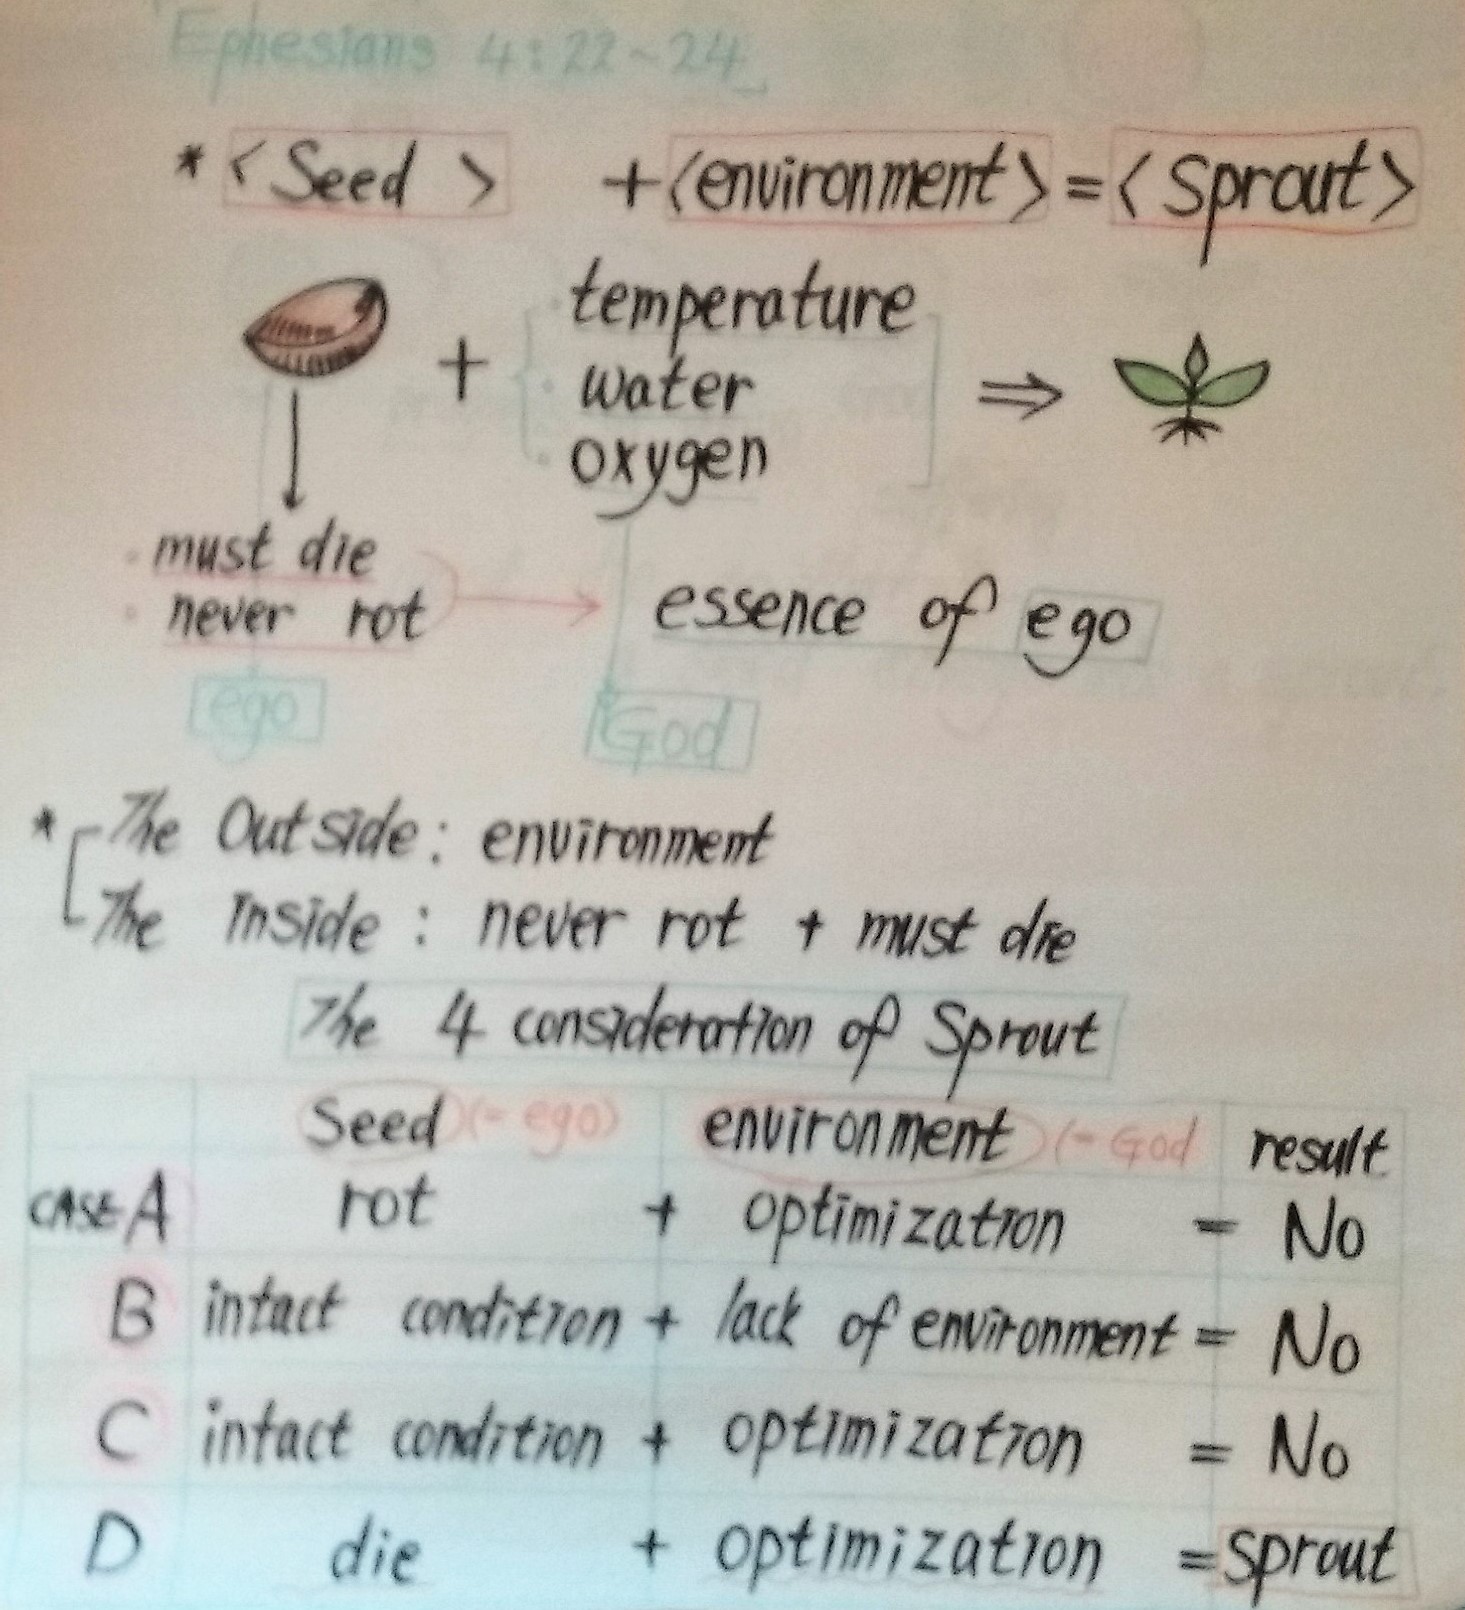 Ephesians 4:22~24
* < Seed > + <environment> = <Sprout>
temperature
+ water ⇒
oxygen
· must die
· never rot → essence of ego
ego God
* The Outside : environment
The Inside : never rot + must die
The 4 consideration of Sprout
Seed (= ego) environment (= God result
CASE A rot + optimization = No
B intact condition + lack of environment = No
C intact condition + optimization = No
D die + optimization = Sprout